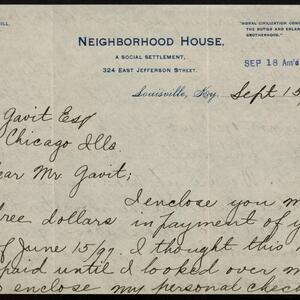 ILL.
NEIGHBORHOOD HOUSE,
A SOCIAL SETTLEMENT,
324 EAST JEFFERSON STREET.
"MORAL CIVILIZATION CON
BROTHERHOOD."
SEP 18 Am'd
Louisville, Ky. Sept 15
Gavit Esq
Chicago Ills.
ear Mr Gavit;
I enclose you m
ree dollars in payment of y
f June 15/97. I thought this
paid until I looked over m
enclose my personal chec